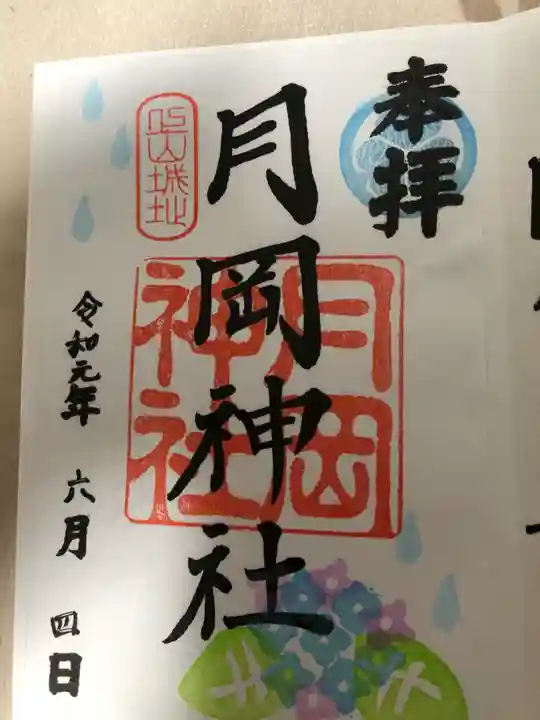 奉拝
月岡神社
月岡神社
山城址
令和元年 六月 四日